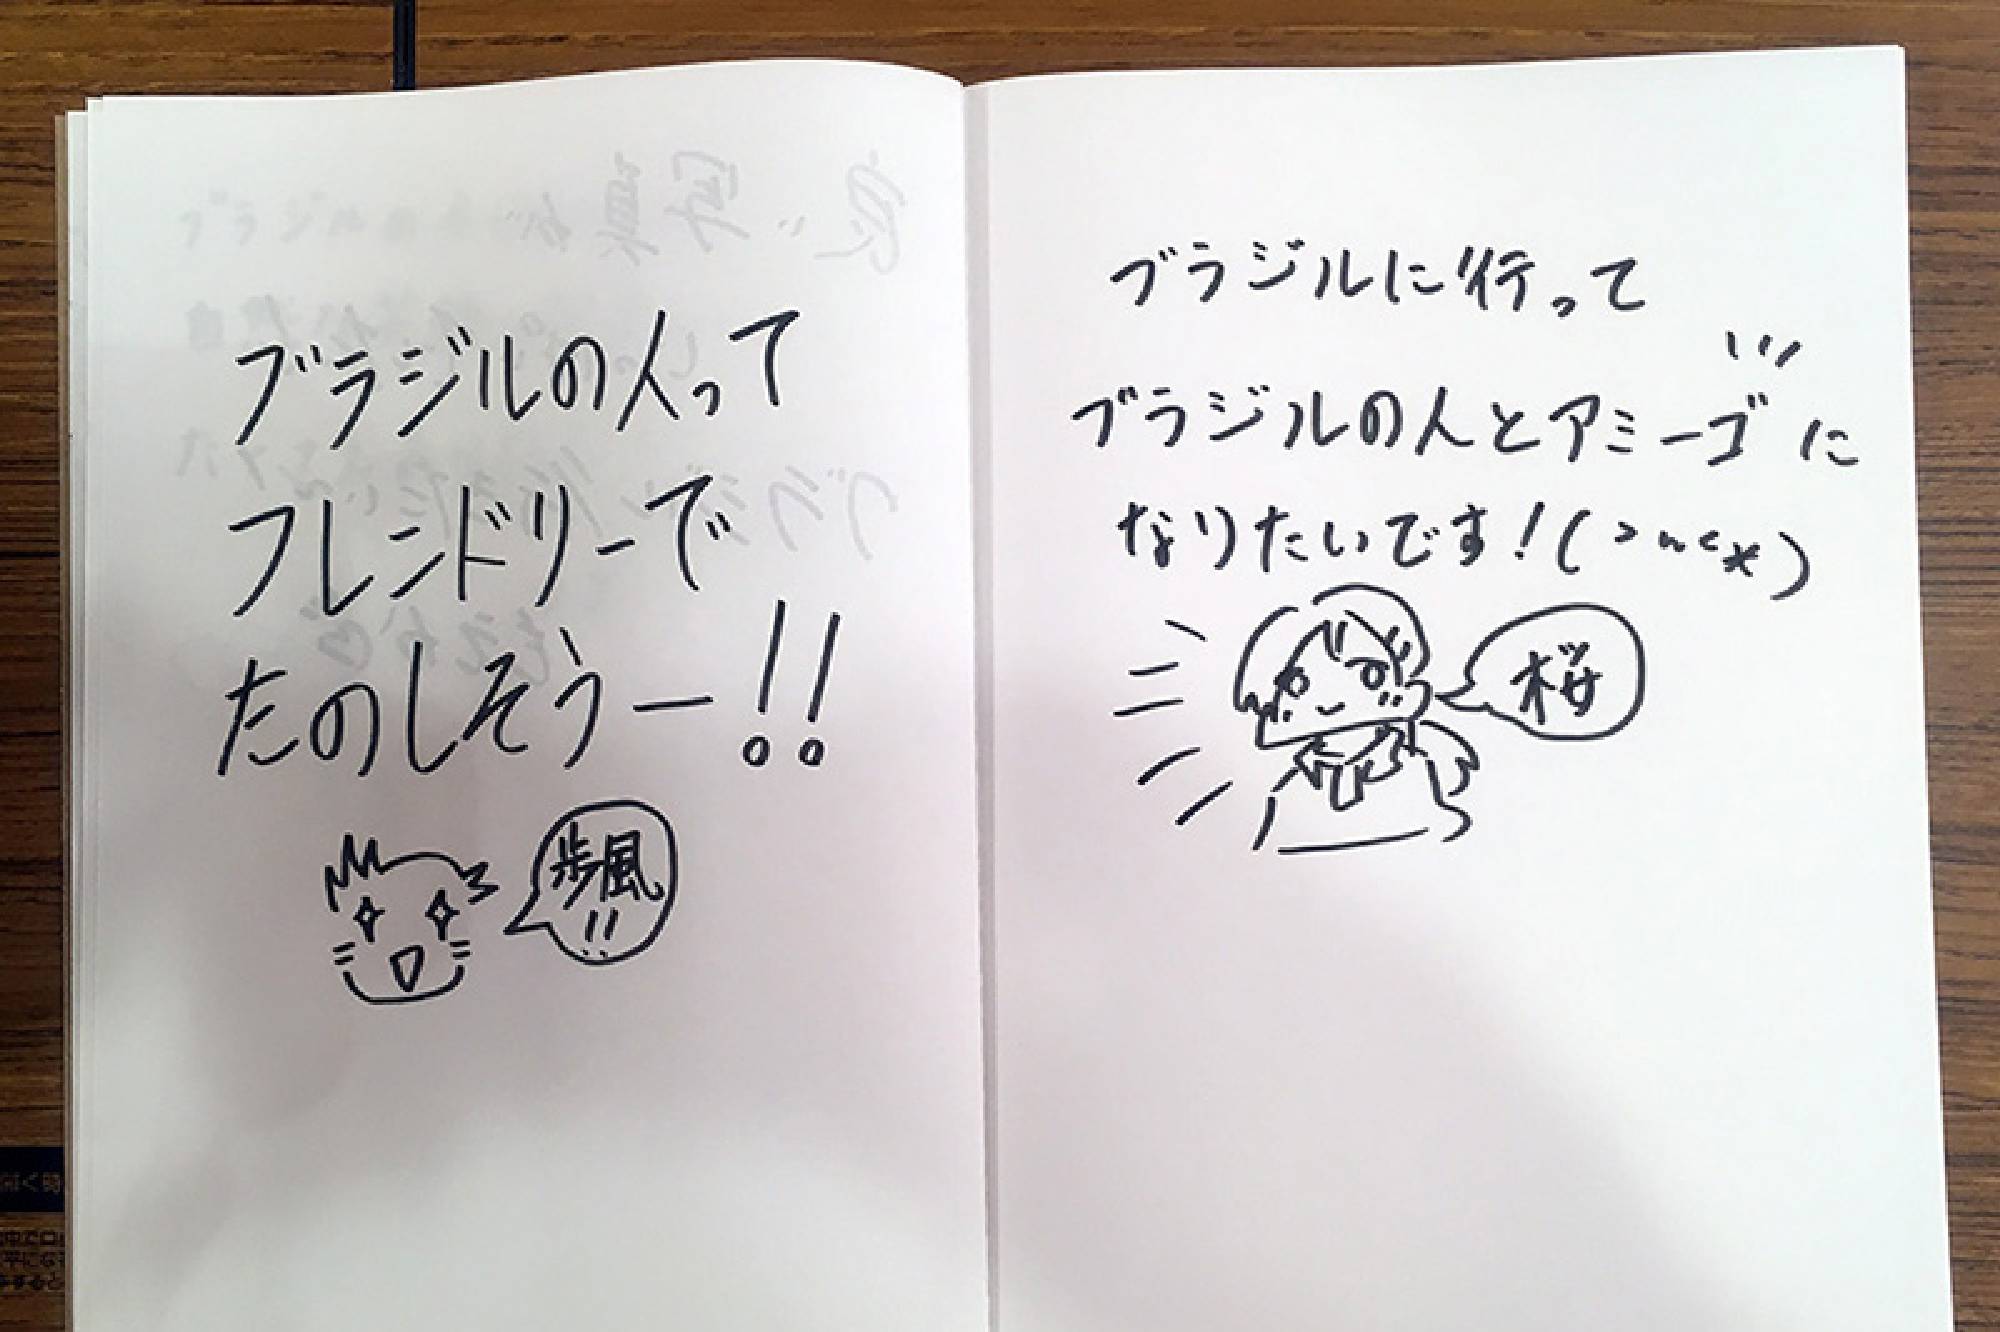 ブラジルの人って
フレンドリーで
たのしそうー!!
歩風!!
ブラジルに行って
ブラジルの人とアミーゴに
なりたいです!(>~<*)
桜